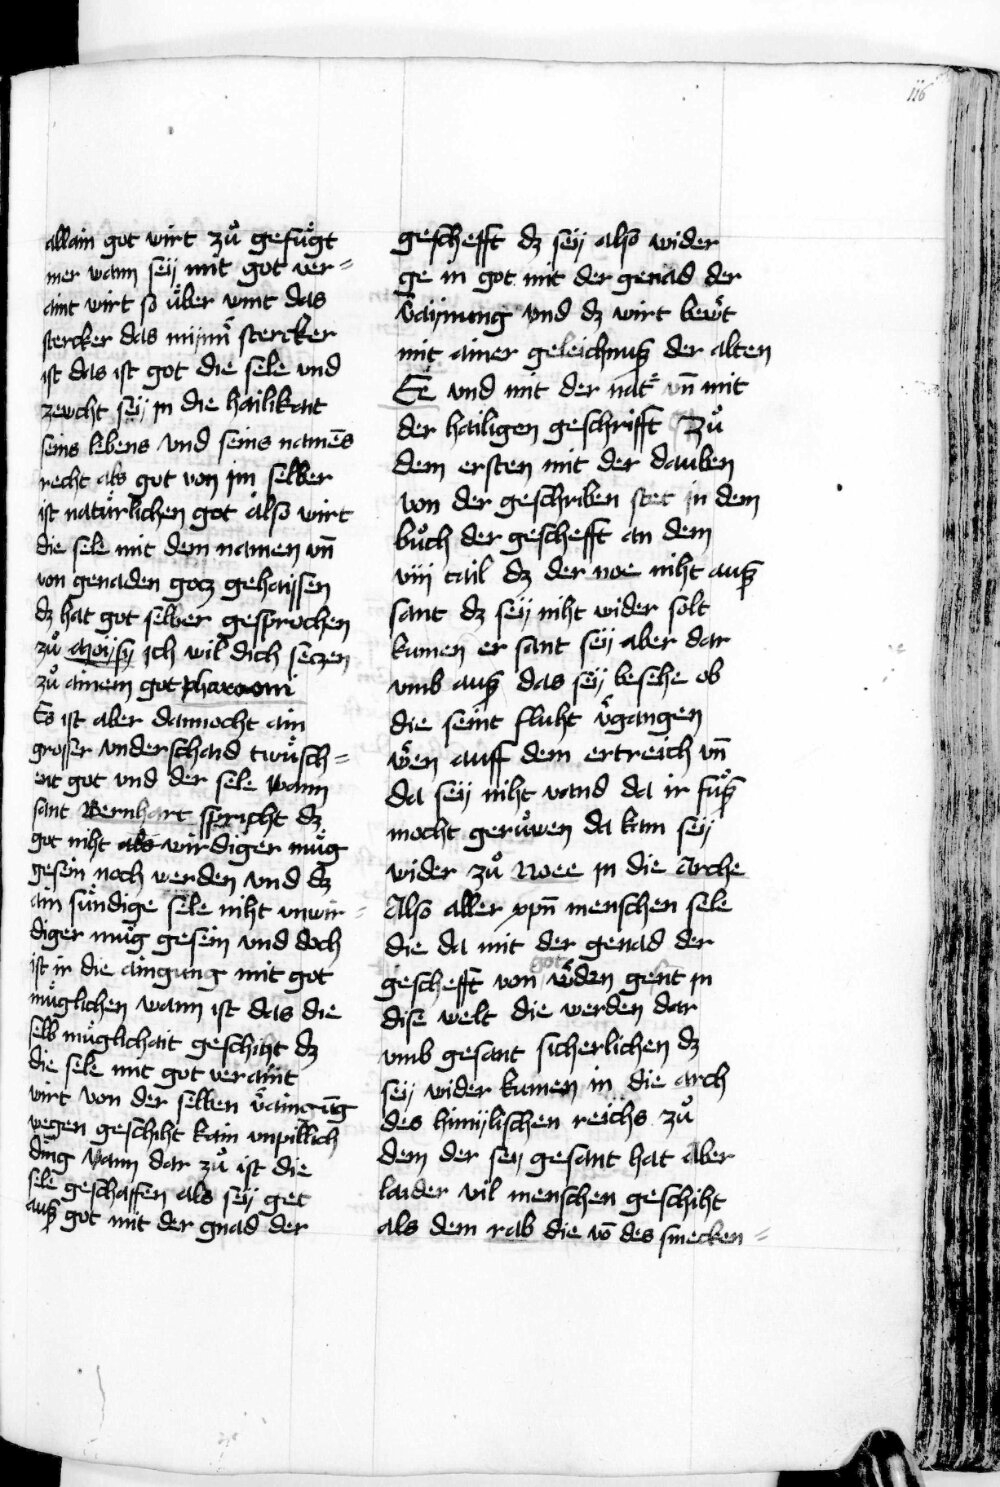 116
allain got wirt zuͦ gefuͤgt
mer wann seÿ mit got ver=
aint wirt so uͤber wint das
stercker das mÿnn̄ stercker
ist das ist got die sele vnd
zewcht seÿ jn die hailikait
seins lebens vnd seins namēs
recht als got von jm selber
ist natuͤrlichen got also wirt
die sele mit dem namen vn̄
von genaden gotz gehaissen
dz hat got selber gesprochen
zuͦ Moÿsÿ Ich wil dich seczen
zuͦ ainem got pharaoni
Es ist aber dannocht ain
grosser vnderschaid twuͤsch=
ent got vnd der sele wann
sant Bernhart spricht dz
got niht als wirdiger muͤg
gesein noch werden vnd dz
ain suͤndige sele niht vnwir=
diger muͤg gesein vnd doch
ist ir die aingung mit got
muͤglichen wann ist das die
selb muͤglichait geschiht dz
die sele mit got veraint
wirt von der selben v̾aingūg
wegen geschiht kain vnpillich
ding Wann dar zuͦ ist die
sele geschaffen als seÿ get
auß got mit der gnad der
geschefft dz seÿ also wider
ge in got mit der genad der
v̾aÿnung vnd dz wirt bew̾t
mit ainer geleichnuß der alten
Ee vnd mit der nat̾ vn̄ mit
der hailigen geschrifft Zuͦ
dem ersten mit der dauben
von der geschriben stet jn dem
buͦch der geschefft an dem
viij tail dz der noe niht auß
sant dz seÿ niht wider solt
kumen er sant seÿ aber dar
vmb auß das seÿ besehe ob
die seint fluht v̾gangen
w̾en auff dem ertreich vn̄
da seÿ niht vand da ir fuͤß
mocht geruͦwen da kam seÿ
wider zuͦ Noee jn die Arche
Also aller xpn̄ menschen sele
die da mit der genad der
geschefft von got w̾den gent jn
dise welt die werden dar
vmb gesant sicherlichen dz
seÿ wider kumen in die arch
des himÿlischen reichs zuͦ
dem der seÿ gesant hat Aber
laider vil menschen geschiht
als dem rab die vō des smecken=